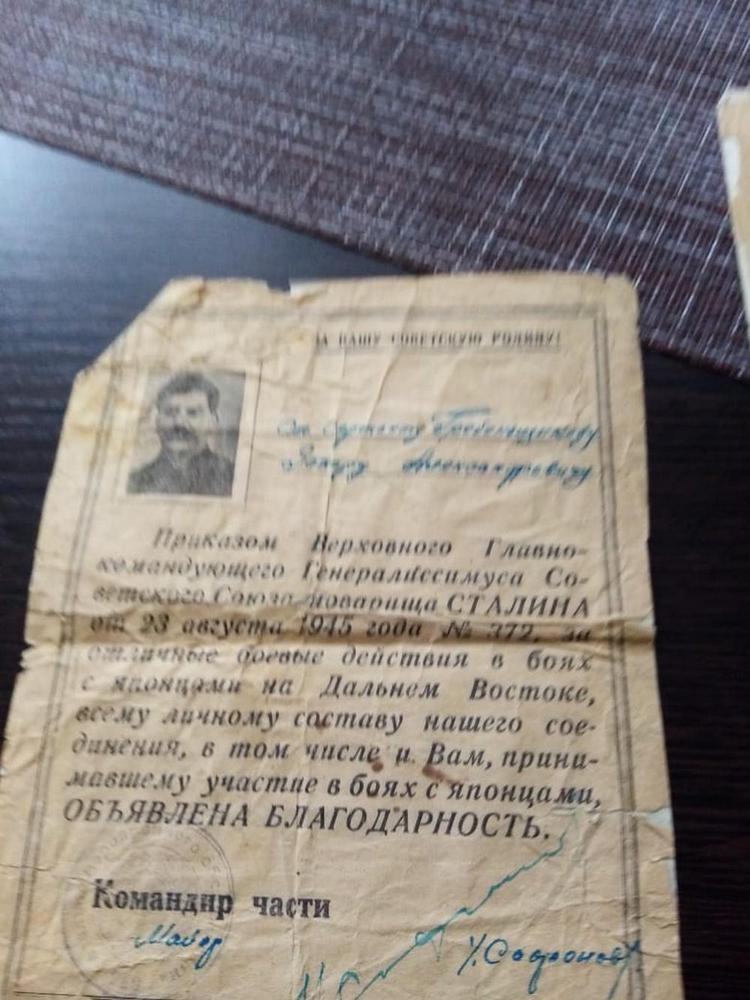 ЗА НАШУ СОВЕТСКУЮ РОДИНУ!
Александровичу
Приказом Верховного Главно-
командующего Генералиссимуса Со-
ветского Союза товарища СТАЛИНА
от 23 августа 1945 года № 372, за
отличные боевые действия в боях
с японцами на Дальнем Востоке,
всему личному составу нашего сое-
динения, в том числе и Вам, прини-
мавшему участие в боях с японцами,
ОБЪЯВЛЕНА БЛАГОДАРНОСТЬ.
Командир части
Майор